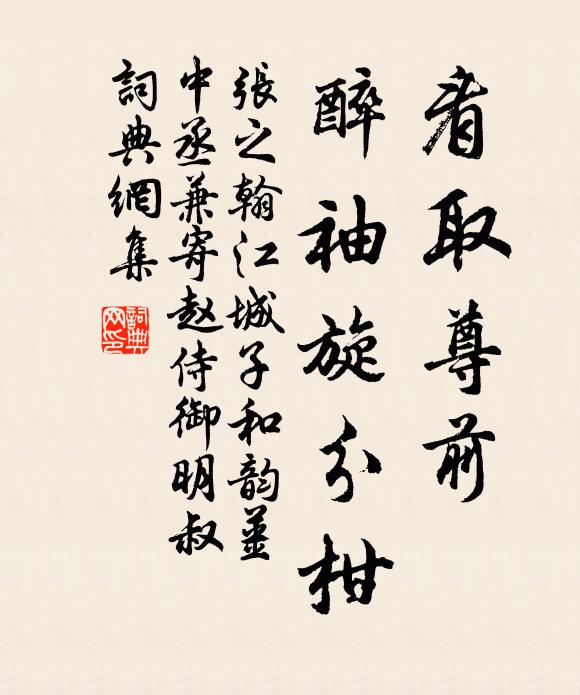 看取尊前
醉袖旋分柑
張之翰江城子和韵薑
中丞兼寄赵侍御明叔
詞典網集
詞典
网印